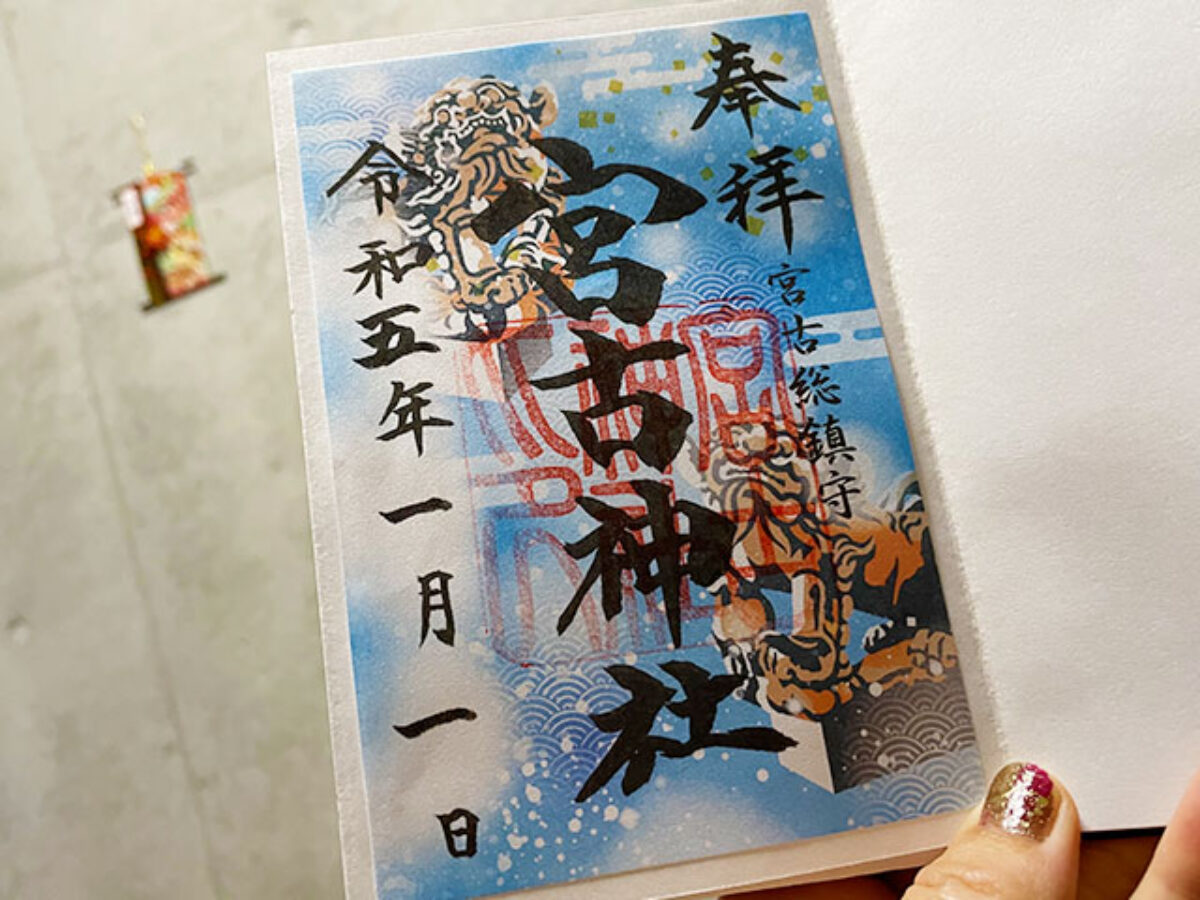 奉拝
宮古総鎮守
宮古神社
令和五年一月一日